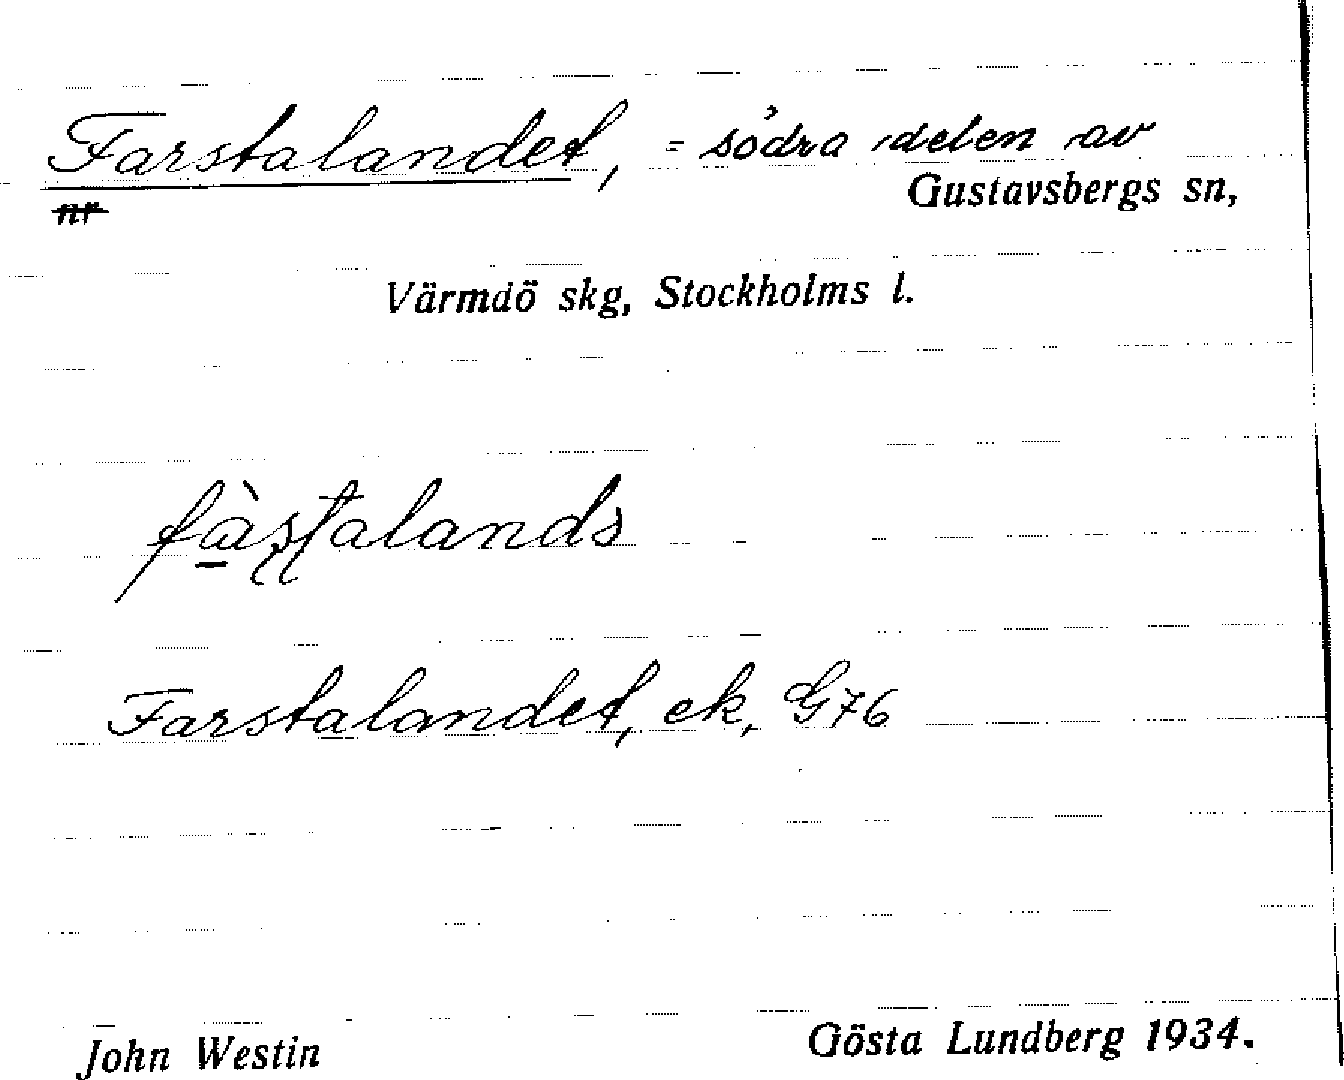 Farstalandet, = södra delen av
Gustavsbergs sn,
nr
Värmdö skg, Stockholms l.
fàstalands
Farstalandet, ek, G76
John Westin Gösta Lundberg 1934.